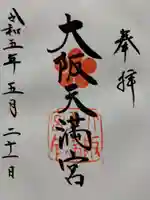 奉拝
大阪天満宮
令和五年五月二十一日